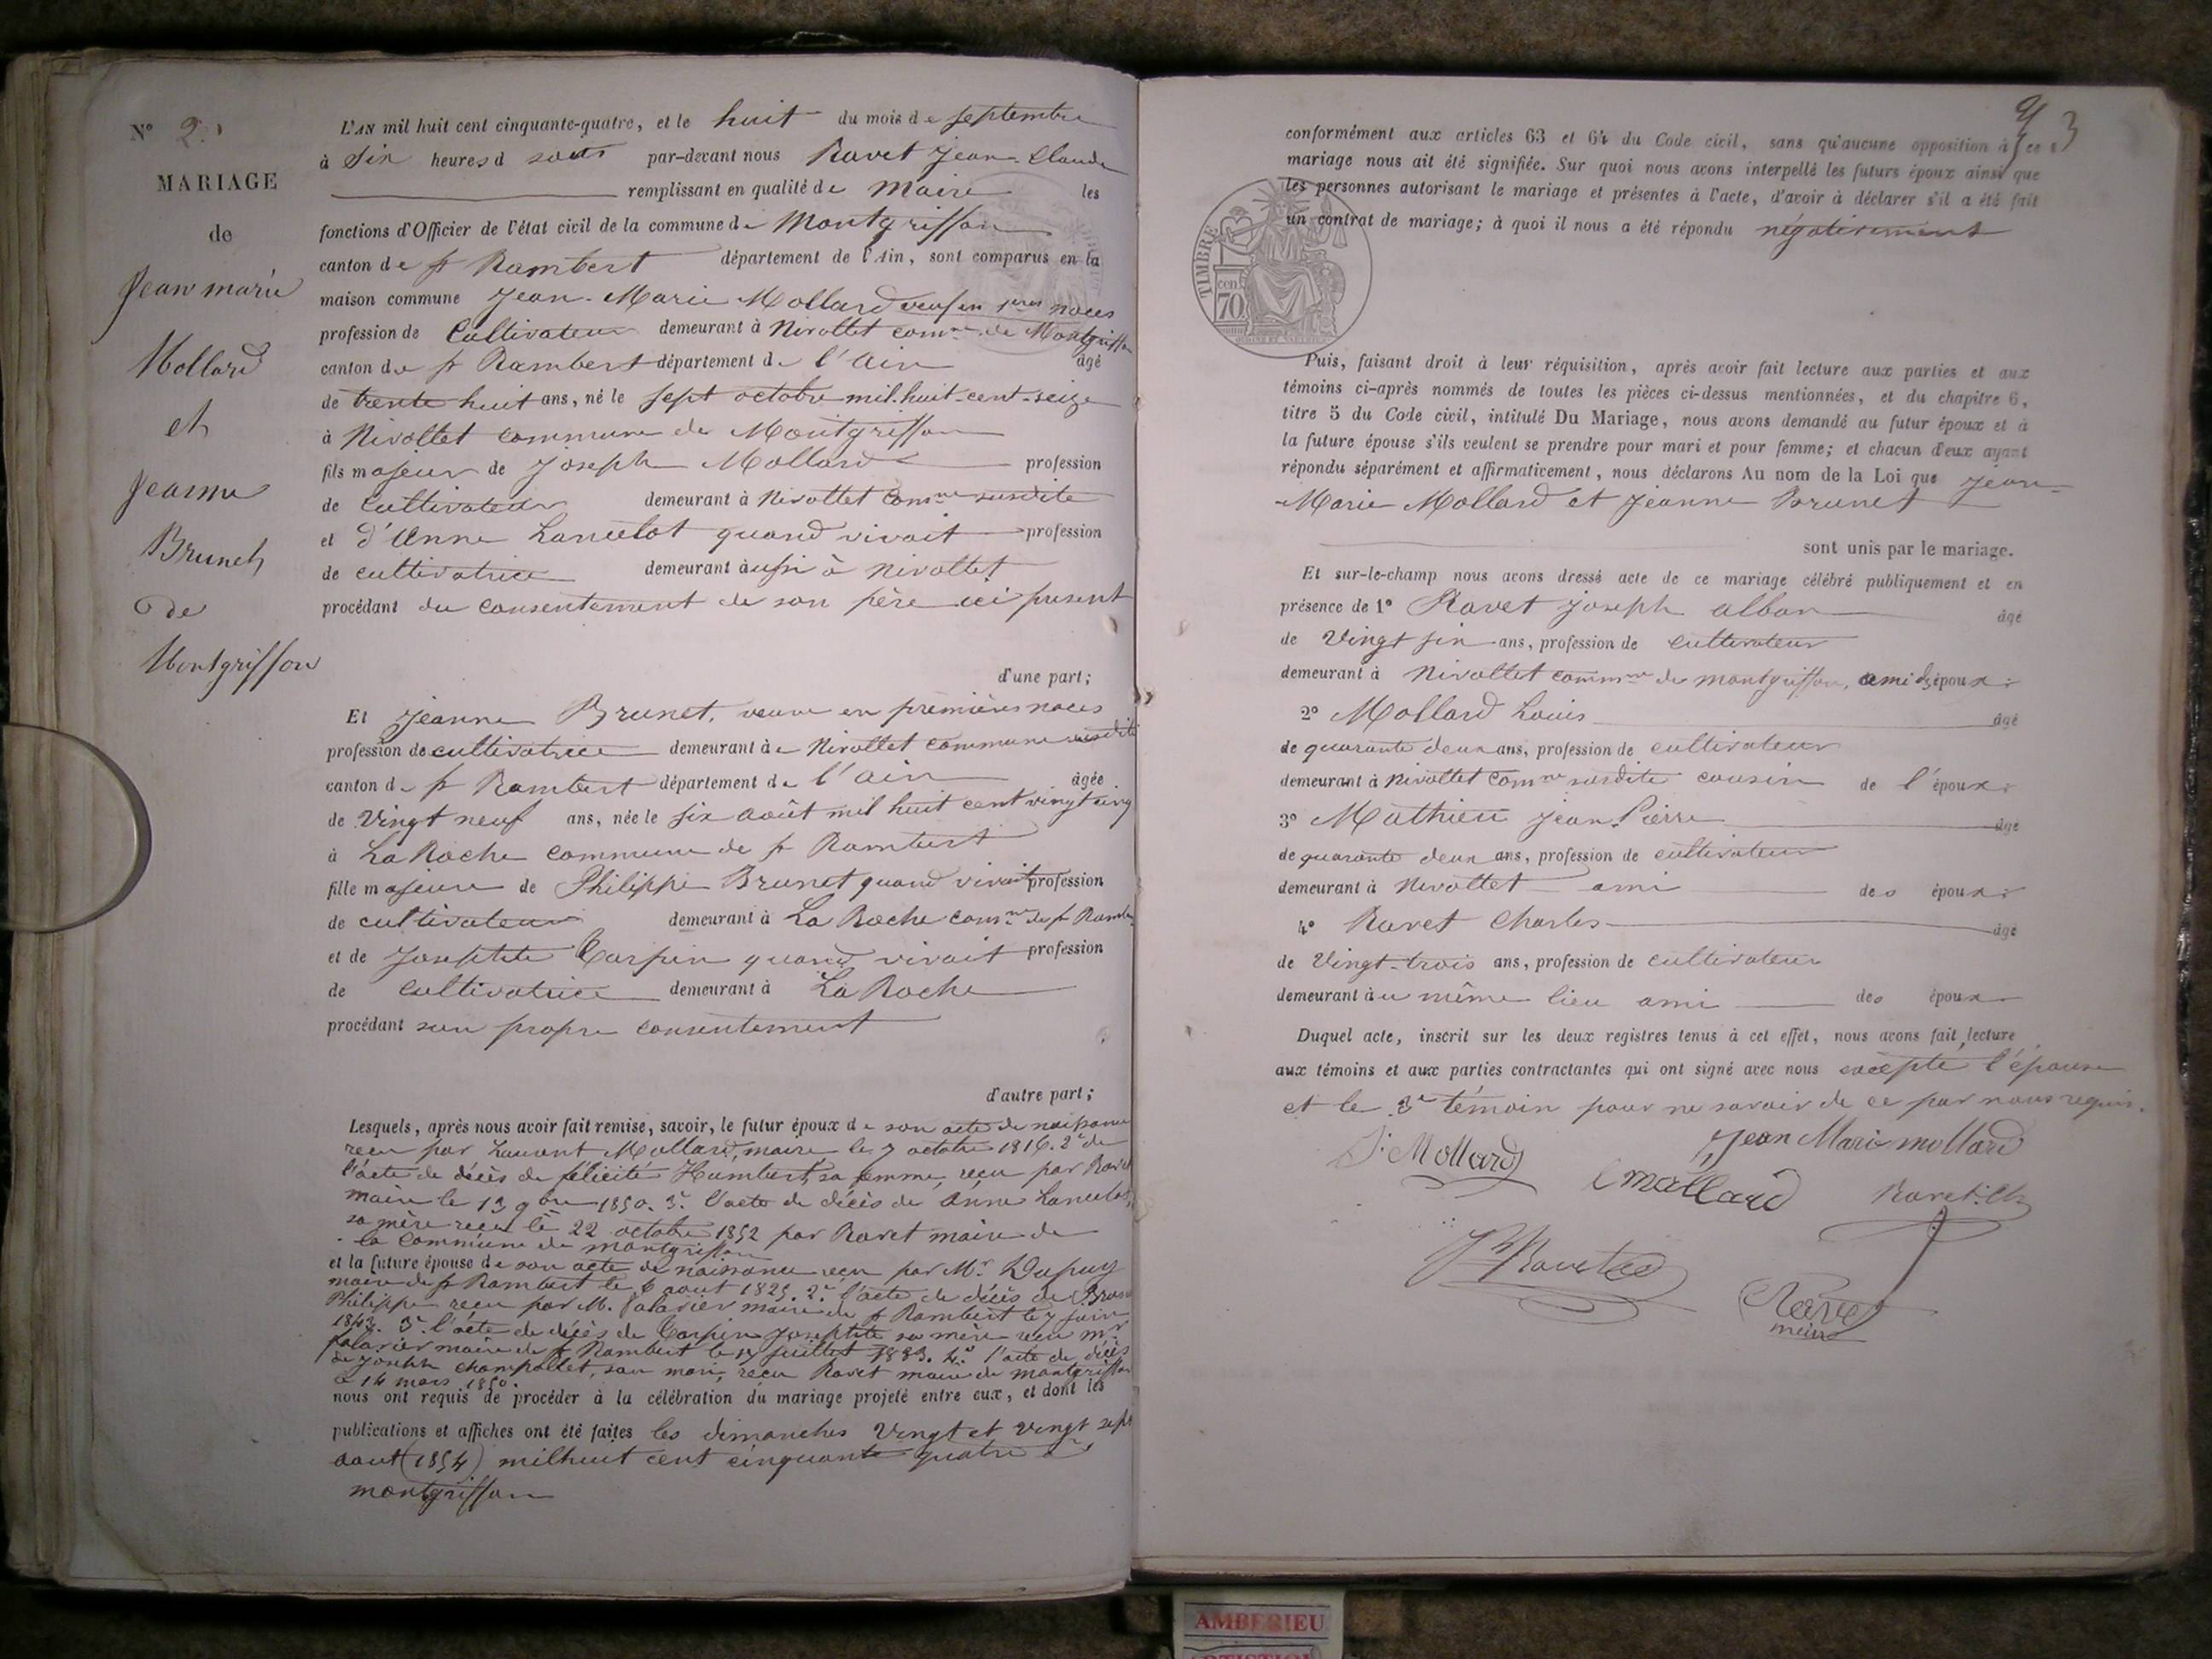 N° 2.
MARIAGE
de
Jean marie
Mollard
et
Jeanne
Brunet
de
Montgriffon
L'AN mil huit cent cinquante-quatre, et le huit du mois de septembre
à Six heures d par-devant nous Ravet Jean-Claude
remplissant en qualité de Maire les
fonctions d'Officier de l'état civil de la commune de Montgriffon
canton de st Rambert département de l'Ain, sont comparus en la
maison commune Jean-Marie Mollard veuf en 1res noces
profession de Cultivateur demeurant à Nivollet comne de Montgriffon
canton de st Rambert département de l'ain âgé
de trente huit ans, né le sept octobre mil-huit-cent-seize
à Nivollet commune de Montgriffon
fils majeur de Joseph Mollard profession
de Cultivateur demeurant à Nivollet comne susdite
et d'Anne Lancelot quand vivait profession
de cultivatrice demeurant aussi à Nivollet
procédant du consentement de son père ici présent
d'une part;
Et Jeanne Brunet, veuve en premières noces
profession de cultivatrice demeurant à Nivollet commune susdite
canton de st Rambert département de l'ain âgée
de Vingt neuf ans, née le six août mil huit cent vingt cinq
à La Roche commune de st Rambert
fille majeure de Philippe Brunet quand vivait profession
de cultivateur demeurant à La Roche comne de st Ramb
et de Josephte Carpin quand vivait profession
de Cultivatrice demeurant à La Roche
procédant son propre consentement
d'autre part;
Lesquels, après nous avoir fait remise, savoir, le futur époux de son acte de naissance
reçu par Laurent Mollard, maire le 7 octobre 1816. 2° de
l'acte de décès de félicité Humbert, sa femme, reçu par Ravet
maire le 13 9bre 1850. 3° l'acte de décès de Anne Lancelot,
sa mère reçu le 22 octobre 1852 par Ravet maire de
la commune de montgriffon
et la future épouse de son acte de naissance reçu par Mr Dupuy
maire de st Rambert le 6 aout 1825. 2° l'acte de décès de Brun
Philippe reçu par M. maire de st Rambert le 7 juin
1843. 3° l'acte de décès de Carpin Josephte sa mère reçu mr
maire de st Rambert le 17 juillet 1833. 4° l'acte de décès
de Joseph Champollet, son mari, reçu Ravet maire de montgriffon
le 14 mars 1850.
nous ont requis de procéder à la célébration du mariage projeté entre eux, et dont les
publications et affiches ont été faites les dimanches vingt et vingt sept
aout (1854) milhuit cent cinquante quatre à
montgriffon
3
conformément aux articles 63 et 64 du Code civil, sans qu'aucune opposition à ce
mariage nous ait été signifiée. Sur quoi nous avons interpellé les futurs époux ainsi que
les personnes autorisant le mariage et présentes à l'acte, d'avoir à déclarer s'il a été fait
un contrat de mariage; à quoi il nous a été répondu négativement
TIMBRE
cen.
70
Puis, faisant droit à leur réquisition, après avoir fait lecture aux parties et aux
témoins ci-après nommés de toutes les pièces ci-dessus mentionnées, et du chapitre 6,
titre 5 du Code civil, intitulé Du Mariage, nous avons demandé au futur époux et à
la future épouse s'ils veulent se prendre pour mari et pour femme; et chacun d'eux ayant
répondu séparément et affirmativement, nous déclarons Au nom de la Loi que Jean-
Marie Mollard et Jeanne Brunet
sont unis par le mariage.
Et sur-le-champ nous avons dressé acte de ce mariage célébré publiquement et en
présence de 1° Ravet Joseph alban âgé
de Vingt six ans, profession de cultivateur
demeurant à Nivollet comne de montgriffon, ami des époux
2° Mollard Louis âgé
de quarante deux ans, profession de cultivateur
demeurant à Nivollet comne susdite cousin de l'époux
3° Mathieu Jean-Pierre âgé
de quarante deux ans, profession de cultivateur
demeurant à Nivollet ami des époux
4° Ravet Charles âgé
de Vingt-trois ans, profession de cultivateur
demeurant au même lieu ami des époux
Duquel acte, inscrit sur les deux registres tenus à cet effet, nous avons fait lecture
aux témoins et aux parties contractantes qui ont signé avec nous excepté l'épouse
et le 3e témoin pour ne savoir de ce par nous requis.
J. Mollard
Jean Marie mollard
L mollard
Ravet. Ch
Ravet
maire
AMBERIEU